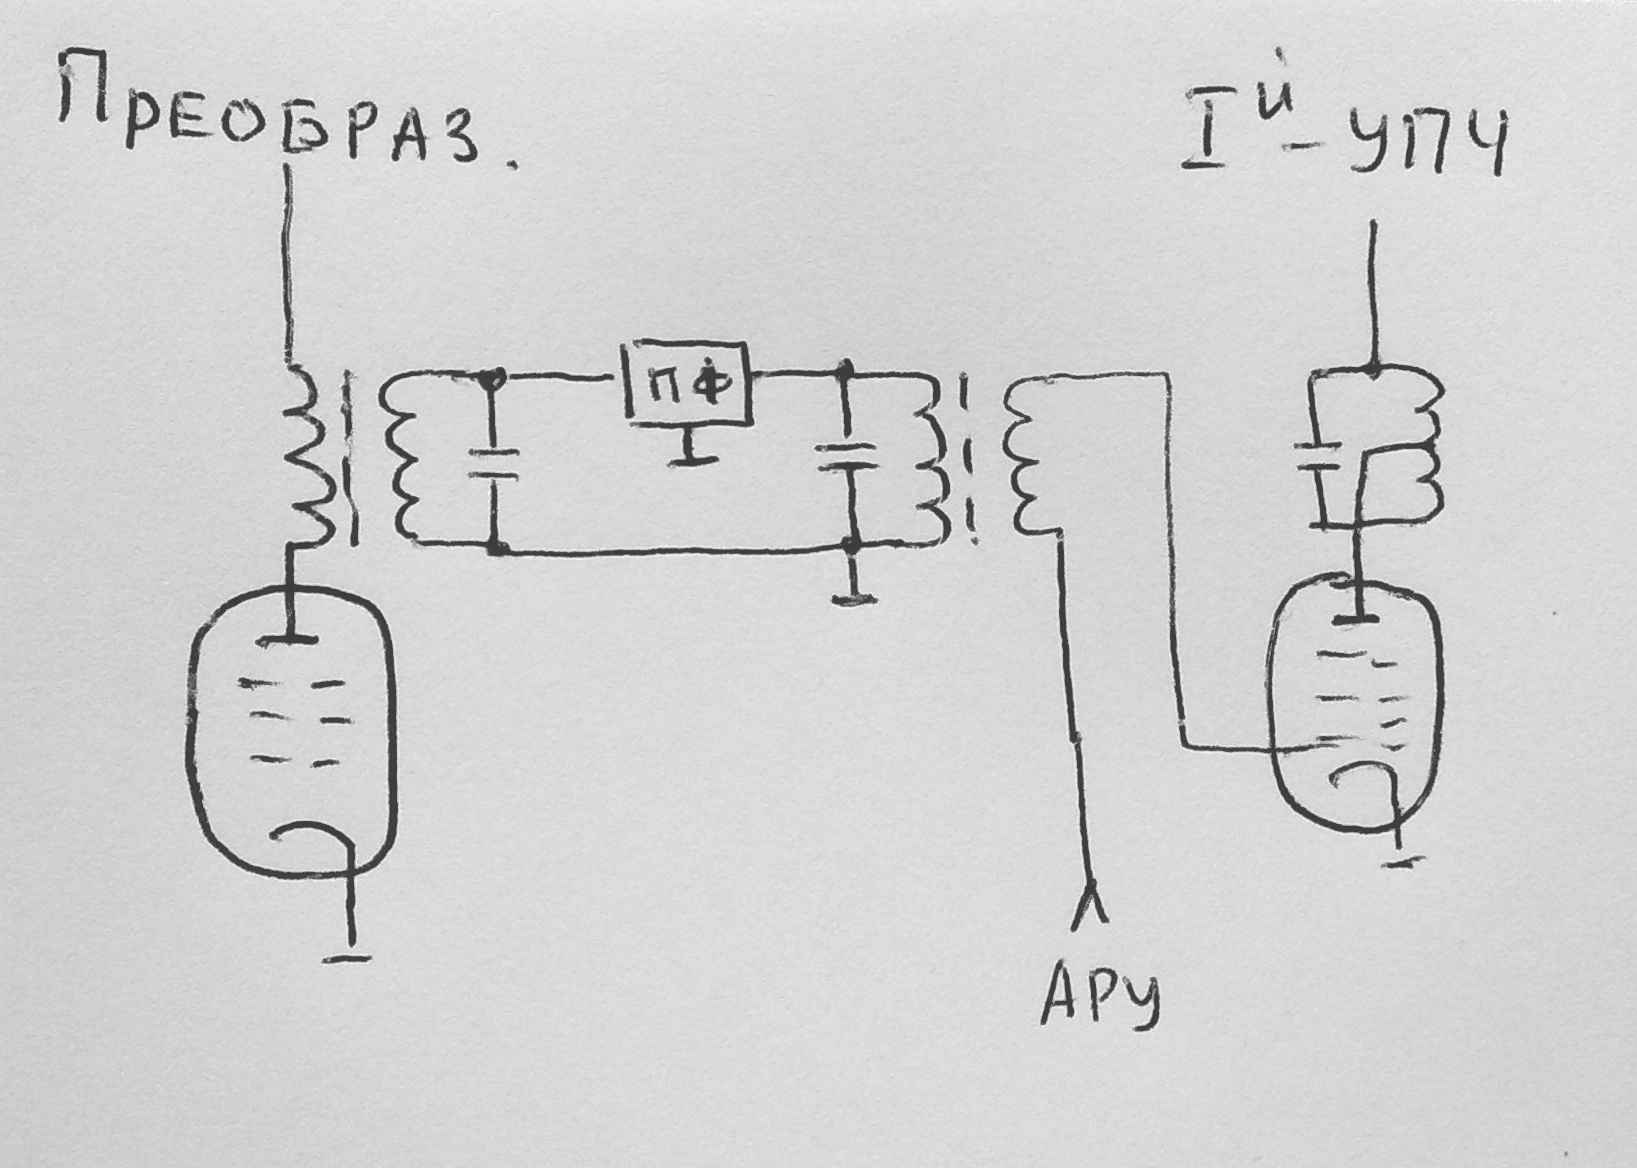 ПРЕОБРАЗ.
Iй-УПЧ
ПФ
АРУ